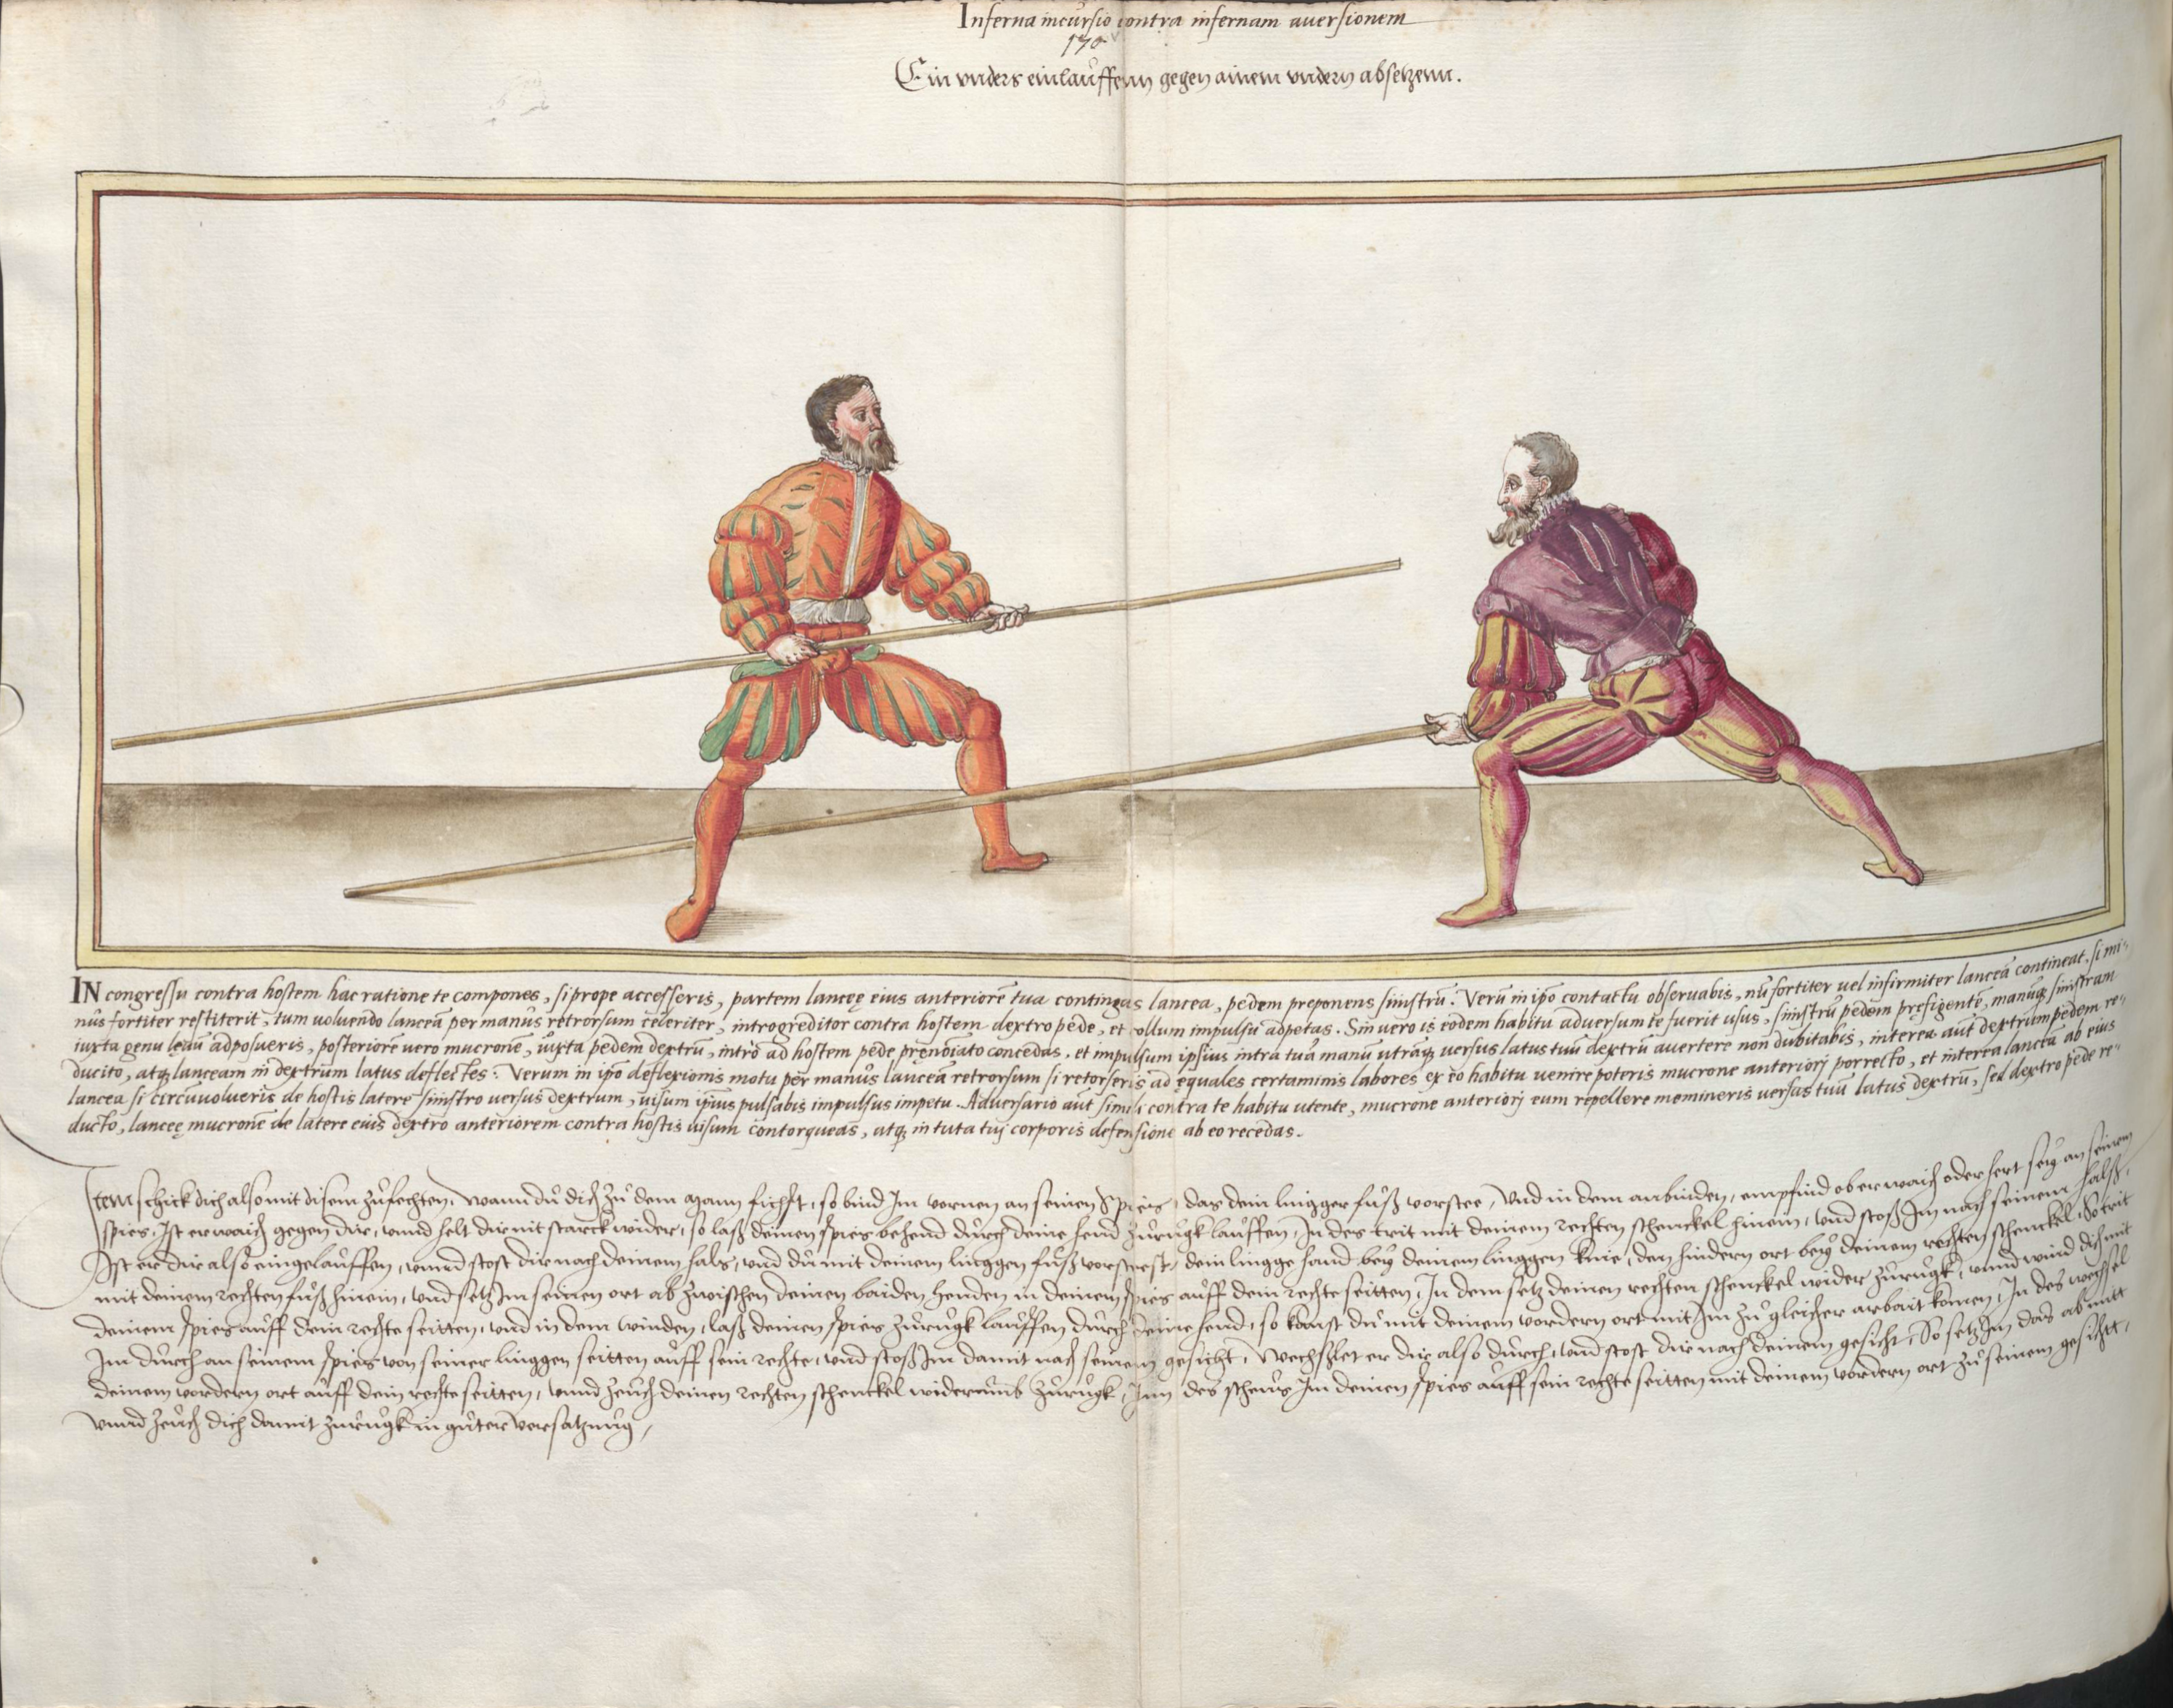 Inferna incursio contra infernam auersionem
170
Ein vnders einlauffenn gegen ainem vndern absetzenn.
IN congressu contra hostem hac ratione te compones, si prope accesseris, partem lanceę eius anteriorē tua contingas lancea, pedem preponens sinistrū. Verū in ipō contactu obseruabis, nū fortiter uel infirmiter lanceā contineat. si mi-
nus fortiter restiterit, tum uoluendo lanceā per manus retrorsum celeriter, introgreditor contra hostem dextro pede, et collum impulsu adpetas. Sin uero is eodem habitu aduersum te fuerit usus, sinistrū pedem prefigente, manūq sinistram
iuxta genu leuū adposueris, posteriorē uero mucronē, iuxta pedem dextrū, intro ad hostem pede prenotato concedas, et impulsum ipsius intra tuā manū utrāq uersus latus tuū dextrū auertere non dubitabis, interea aut dextrum pedem re-
ducito, atq lanceam in dextrum latus deflectes. Verum in ipō deflexionis motu per manus lanceā retrorsum si retorseris ad ęquales certaminis labores ex eo habitu uenire poteris mucrone anteriorj porrecto, et interea lanceā ab eius
lancea si circūuolueris de hostis latere sinistro uersus dextrum, uisum ipsius pulsabis impulsus impetu. Aduersario aut simili contra te habitu utente, mucrone anteriorj eum repellere memineris uersus tuū latus dextrū, sed dextro pede re-
ducto, lanceę mucronē de latere euis dextro anteriorem contra hostis uisum contorqueas, atq in tuta tuj corporis defensione ab eo recedas.
Item schick dich also mit disem zufechten, wann du dich zu dem mann fichst, so bind Im vornen an seinen Spies, das dein lingger fuß vorstee, Vnd in dem anbinden, empfind ob er waich oder hert sey an seinem
spies, Ist er waich gegen dir, vnnd helt dir nit starck wider, so laß deinen spies behend durch deine hend zurugk lauffen, In des trit mit deinem rechten schenckel hinein, vnd stoß Im nach seinem halß,
Ist er dir also eingelauffen, vnnd stost dir nach deinem hals, vnd du mit deinem linggen fuß vorsteest, dein lingge hand bey deinem linggen knie, den hindern ort bey deinem rechten schenckel, So trit
mit deinem rechten fuß hinein, vnd setz Im seinen ort ab zwischen deinen baiden henden in deinem spies auff dein rechte seitten, In dem setz deinen rechten schenckel wider zurugk, vnnd wind dich mit
deinem spies auff dein rechte seitten, vnd in dem winden, laß deinen spies zurugk lauffen durch deine hend, so kanst du mit deinem vordern ort mit Im zu gleicher arbait komen, In des wechsel
Im durch an seinem spies von seiner linggen seitten auff sein rechte, vnd stoß Im damit nach seinem gesicht, Wechslet er dir also durch, vnd stost dir nach deinem gesicht, So setz Im das ab mitt
deinem vordern ort auff dein rechte seitten, vnnd zeuch deinen rechten schenckel widerumb zurugk, Inn des scheus Im deinen spies auff sein rechte seitten mit deinem vordern ort zu seinem gesichtt,
vnnd zeuch dich damit zurugk in guter versatzung,